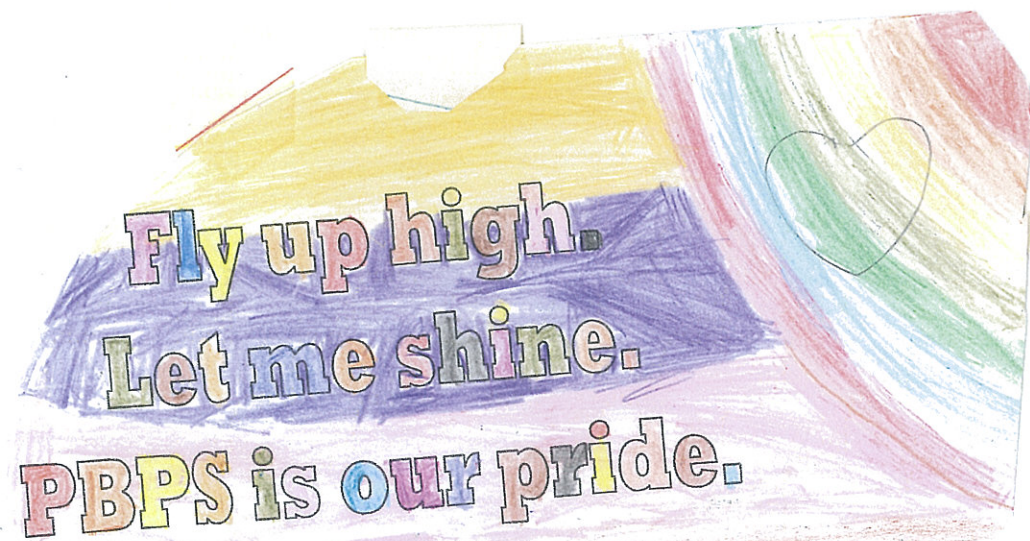 Fly up high.
Let me shine.
PBPS is our pride.